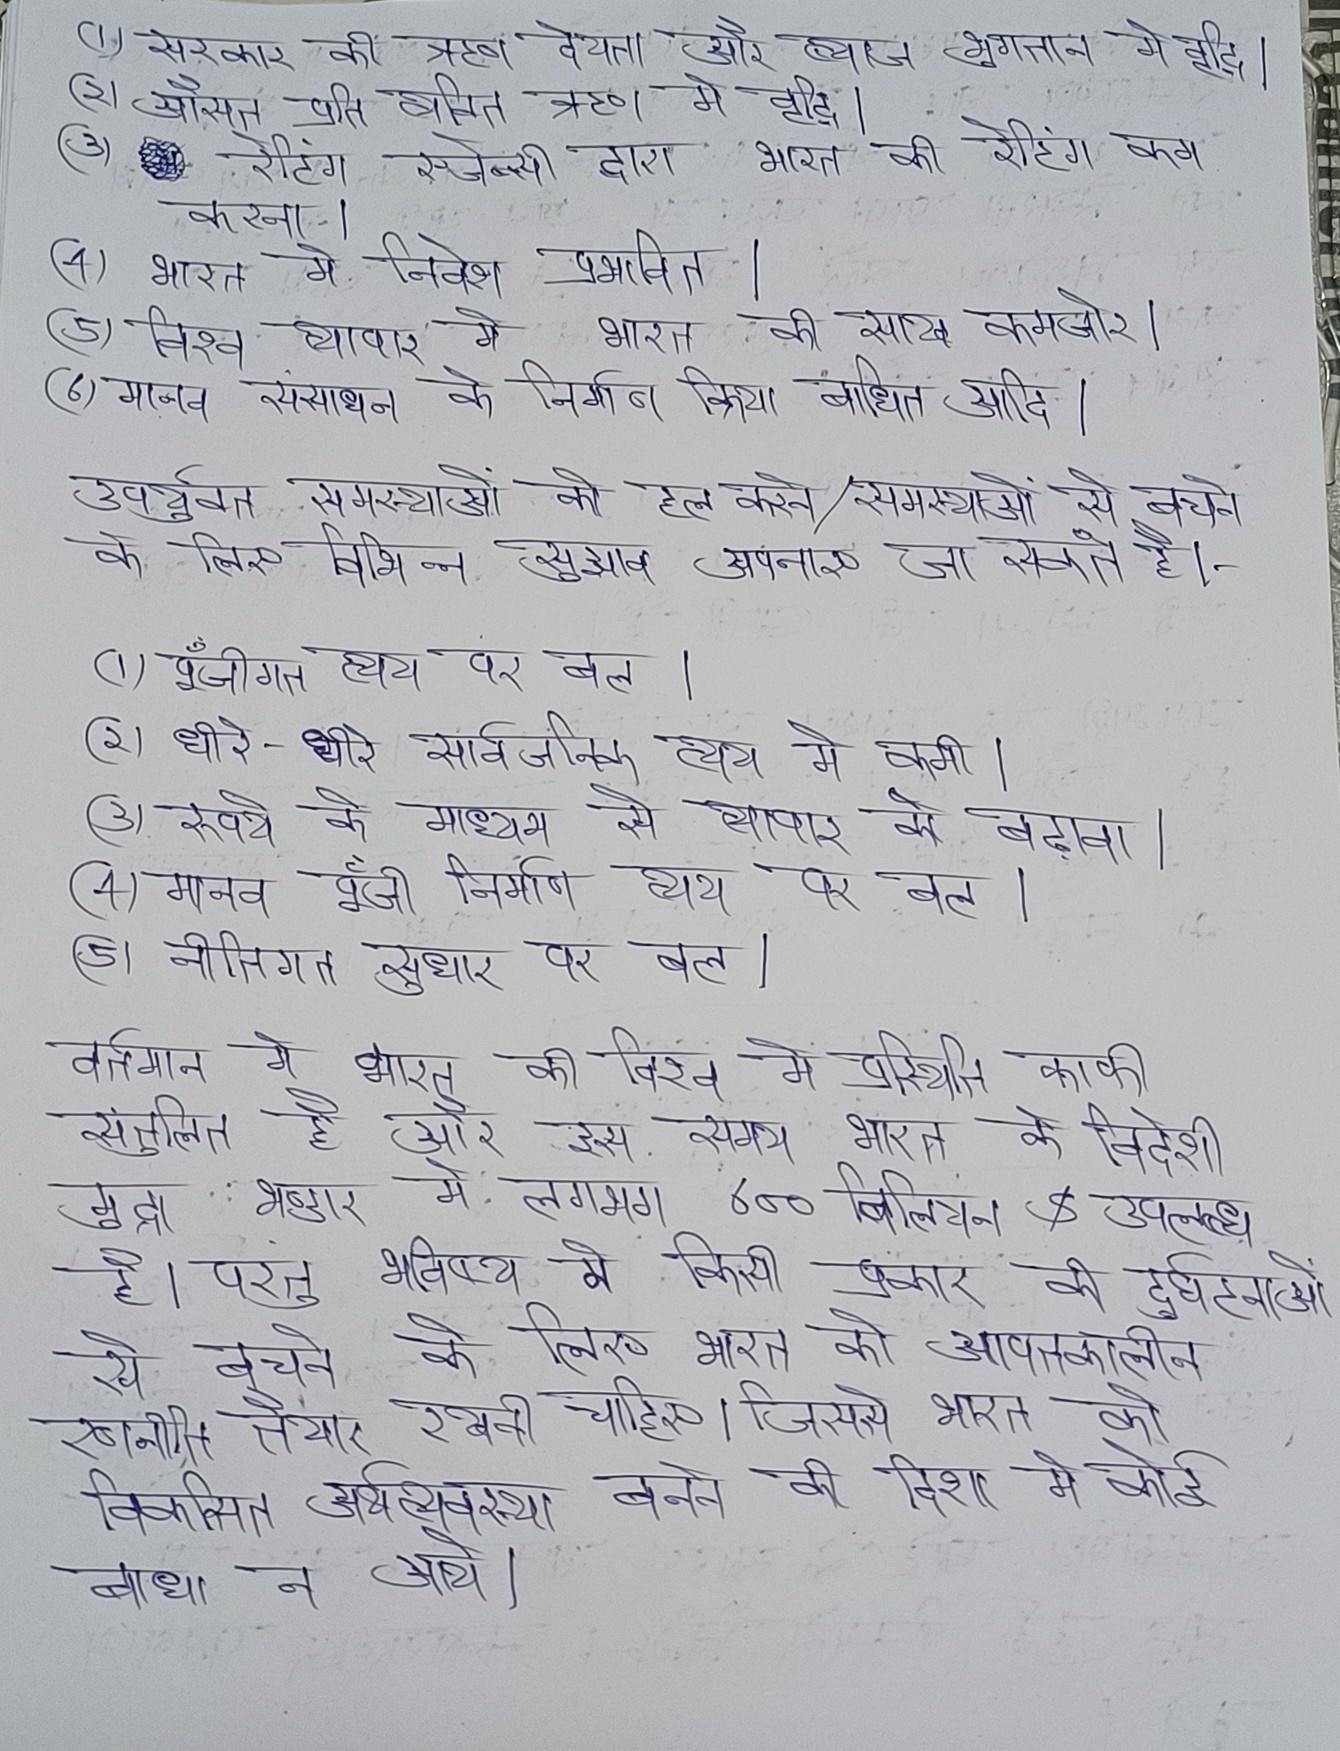 (1) सरकार की ऋण देयता और ब्याज भुगतान मे वृद्धि।
(2) औसत प्रति व्यक्ति ऋण मे वृद्धि।
(3) रेटिंग एजेन्सी द्वारा भारत की रेटिंग कम
करना।
(4) भारत मे निवेश प्रभावित।
(5) विश्व व्यापार मे भारत की साख कमजोर।
(6) मानव संसाधन के निर्माण क्रिया बाधित आदि।
उपर्युक्त समस्याओं को हल करने/समस्याओं से बचने
के लिए विभिन्न सुझाव अपनाए जा सकते है।-
(1) पूँजीगत व्यय पर बल।
(2) धीरे-धीरे सार्वजनिक व्यय मे कमी।
(3) रूपये के माध्यम से व्यापार को बढ़ावा।
(4) मानव पूँजी निर्माण व्यय पर बल।
(5) नीतिगत सुधार पर बल।
वर्तमान मे भारत की विश्व मे प्रस्थिति काफी
संतुलित है और इस समय भारत के विदेशी
मुद्रा भण्डार मे लगभग 600 बिलियन $ उपलब्ध
है। परंतु भविष्य मे किसी प्रकार की दुर्घटनाओं
से बचने के लिए भारत को आपतकालीन
रणनीति तैयार रखनी चाहिए। जिससे भारत को
विकसित अर्थव्यवस्था बनने की दिशा मे कोई
बाधा न आये।